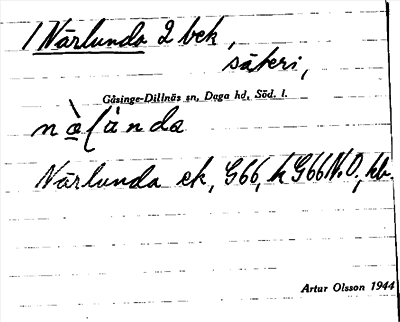 1 Närlunda 2 bek,
säteri,
Gåsinge-Dillnäs sn, Daga hd, Söd. l.
Närlunda ek, G66, k G66 N.O, kb.
Artur Olsson 1944